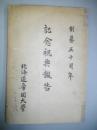 創基五十周年
記念祝典報告
北海道帝国大学